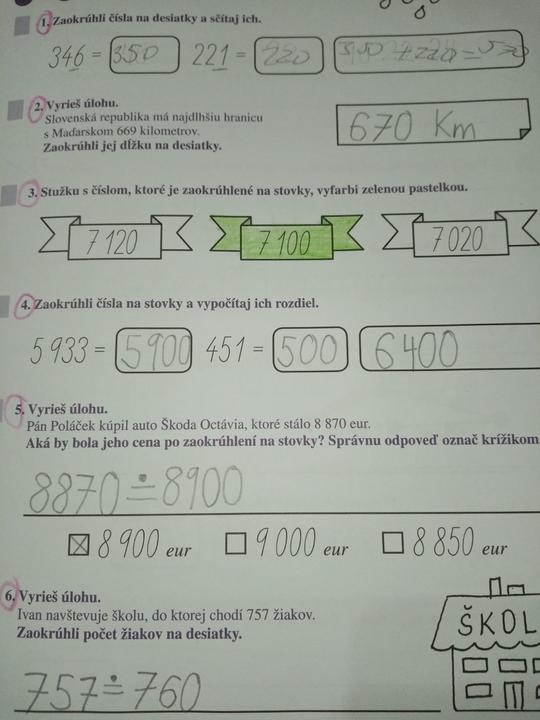 1. Zaokrúhli čísla na desiatky a sčítaj ich.
346 = 350 221 = 220 350 + 220 = 570
2. Vyrieš úlohu.
Slovenská republika má najdlhšiu hranicu
s Maďarskom 669 kilometrov.
Zaokrúhli jej dĺžku na desiatky.
670 Km
3. Stužku s číslom, ktoré je zaokrúhlené na stovky, vyfarbi zelenou pastelkou.
7 120 7 100 7 020
4. Zaokrúhli čísla na stovky a vypočítaj ich rozdiel.
5 933 = 5900 451 = 500 6400
5. Vyrieš úlohu.
Pán Poláček kúpil auto Škoda Octávia, ktoré stálo 8 870 eur.
Aká by bola jeho cena po zaokrúhlení na stovky? Správnu odpoveď označ krížikom
8870 ≐ 8900
8 900 eur 9 000 eur 8 850 eur
6. Vyrieš úlohu.
Ivan navštevuje školu, do ktorej chodí 757 žiakov.
Zaokrúhli počet žiakov na desiatky.
ŠKOL
757 ≐ 760